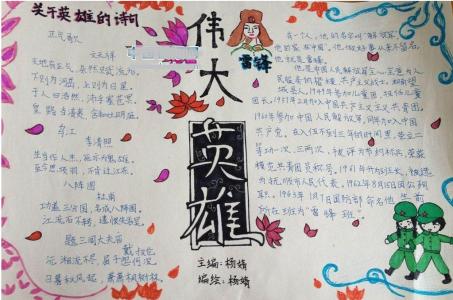 关于英雄的诗词
正气歌
文天祥
天地有正气,杂然赋流形。
下则为河岳,上则为日星。
于人曰浩然,沛乎塞苍冥。
皇路当清夷,含和吐明庭。
乌江
李清照
生当作人杰,死亦为鬼雄。
至今思项羽,不肯过江东。
八阵图
杜甫
功盖三分国,名成八阵图。
江流石不转,遗恨失吞吴。
题三闾大夫庙
戴叔伦
沅湘流不尽,屈子怨何深
日暮秋风起,萧萧枫树林。
伟大
英雄
主编:杨婧
编绘:杨婧
雷锋
有一个人,他的名字叫“解放军”,
他的家叫“中国”。他做好事从来不留名,
他就是雷锋。
他是中国人民解放军
共产主义战士,
1957年2月加入中国共产主义青年团,
1960年参加中国人民解放军,同年加入中国
共产党。在入伍不到三年的时间里,荣立二
等功一次,三等功两次,被评为节约标兵,荣获
模范共青团员称号。1961年升任班长,被选
为抚顺市人民代表。1962年8月15日因公殉
职。1963年1月7日国防部命名他生前
所在班为“雷锋班”。